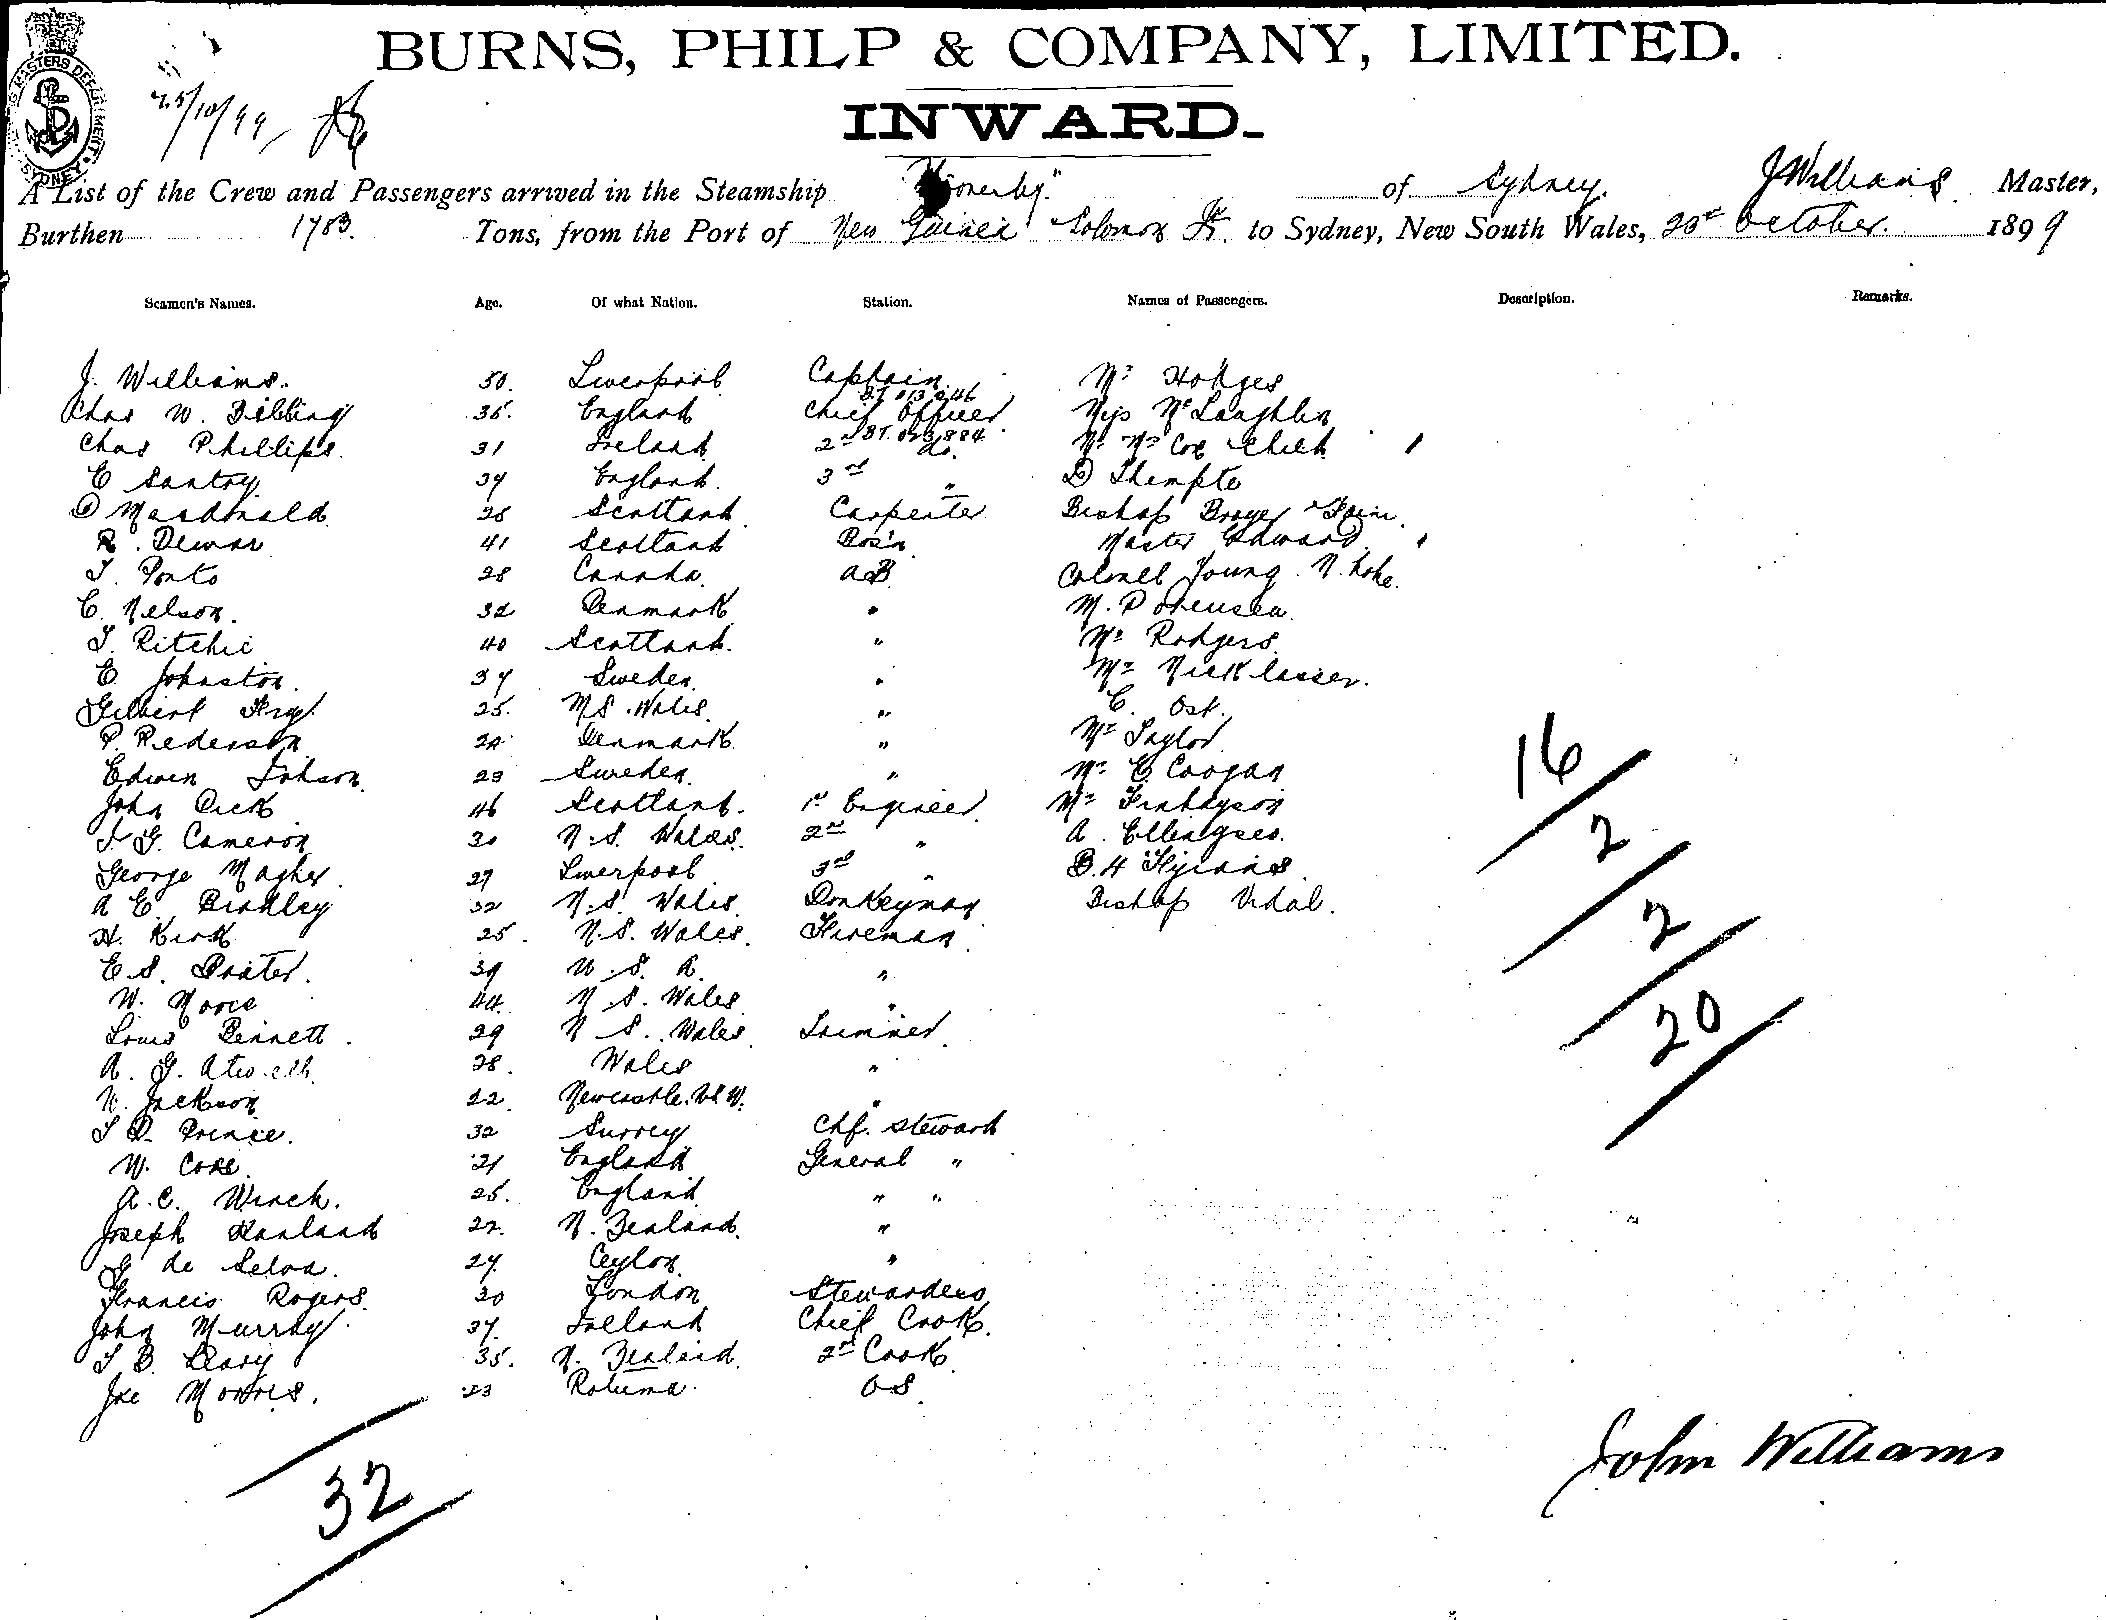 BURNS, PHILP & COMPANY, LIMITED.
INWARD.
MASTERS DEPARTMENT SYDNEY
25/10/99
A List of the Crew and Passengers arrived in the Steamship of Sydney. J Williams Master,
Burthen 1783. Tons, from the Port of New Guinea Solomon Is. to Sydney, New South Wales, October. 1899
Seamen's Names. Age. Of what Nation. Station. Names of Passengers. Description. Remarks.
J. Williams. 50. Liverpool Captain Mr Hodges
Chas W. Dibbing 35. England Chief Officer Miss McLaughlin
Chas Phillips. 31 Ireland 2nd do. Mr Mrs Cox Child
E Santry 39 England. 3rd " D
D Macdonald 28 Scotland Carpenter Bishop
R. Dewar 41 Scotland Bos'n Master Edward
T. Ponto 28 Canada. AB Colonel Young.
C. Nelson. 32 Denmark " M. P
T. Ritchie 40 Scotland. " Mr Rodgers
E Johnston. 37 Sweden. " Mr Nicklassen.
Gilbert 25. N S. Wales. " C. Ost.
P. Pederson 24 Denmark " Mr Taylor
Edwin 23 Sweden. " Mr E Coogan
John Dick 46 Scotland. 1st Engineer Mr Finlayson
J G. Cameron 30 N.S. Wales. 2nd " A.
George Magher 27 Liverpool 3rd " B. H
A E. Bradley 32 N.S. Wales Donkeyman Bishop Vidal.
H. Kirk 25. N.S. Wales. Fireman
E. S. 39 U. S. A. "
W. Moore 44. N. S. Wales "
Louis Bennett. 29 N S. Wales Trimmer
A. G. 28. Wales "
W. Jackson 22 Newcastle. N.S.W. "
T D. Prince. 32 Surrey Chf. Steward
W. 21 England General "
A. C. Winch. 25. England " "
Joseph 22. N. Zealand. "
G de Selva. 27. Ceylon "
Francis Rogers 30 London Stewardess
John Murray 37. Ireland Chief Cook.
T B Leary 35. N. Zealand. 2nd Cook
Joe Morris. 23 Rotuma. OS.
16
2
2
20
32
John Williams